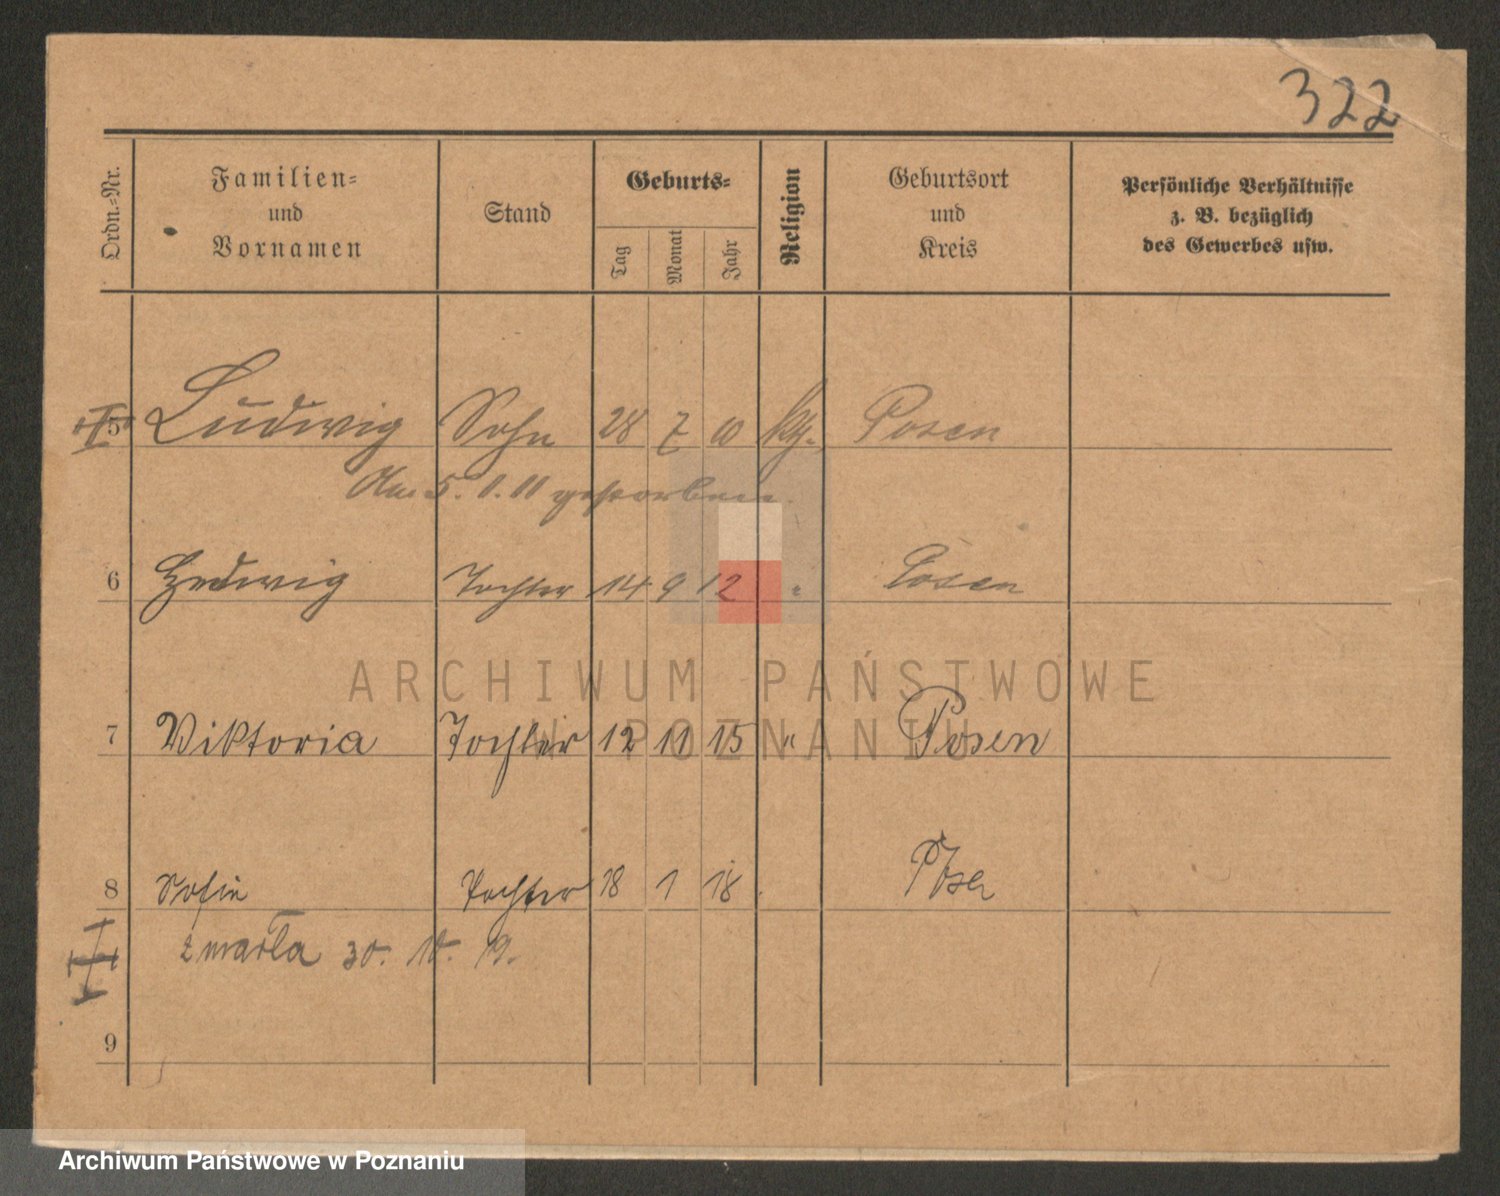 322
Ordn.-Nr.
Familien-
und
Vornamen
Stand
Geburts-
Tag
Monat
Jahr
Religion
Geburtsort
und
Kreis
Persönliche Verhältnisse
z. B. bezüglich
des Gewerbes usw.
5 Ludwig Sohn 28 7 10 kth. Posen
Am 5. 1. 11 gestorben.
6 Hedwig Tochter 14 9 12 " Posen
7 Viktoria Tochter 12 11 15 " Posen
8 Sofie Tochter 18 1 18 Posen
zmarła 30. 10. 19.
9
ARCHIWUM PAŃSTWOWE
W POZNANIU
Archiwum Państwowe w Poznaniu